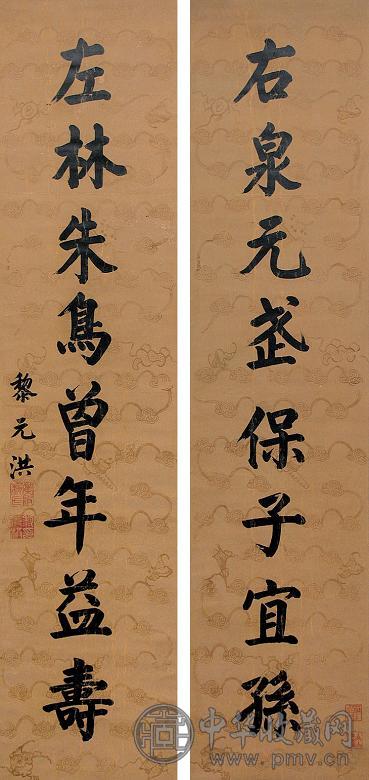 右泉元武保子宜孫
左林朱鳥曾年益壽
黎元洪
中华收藏网
www.pmv.cn